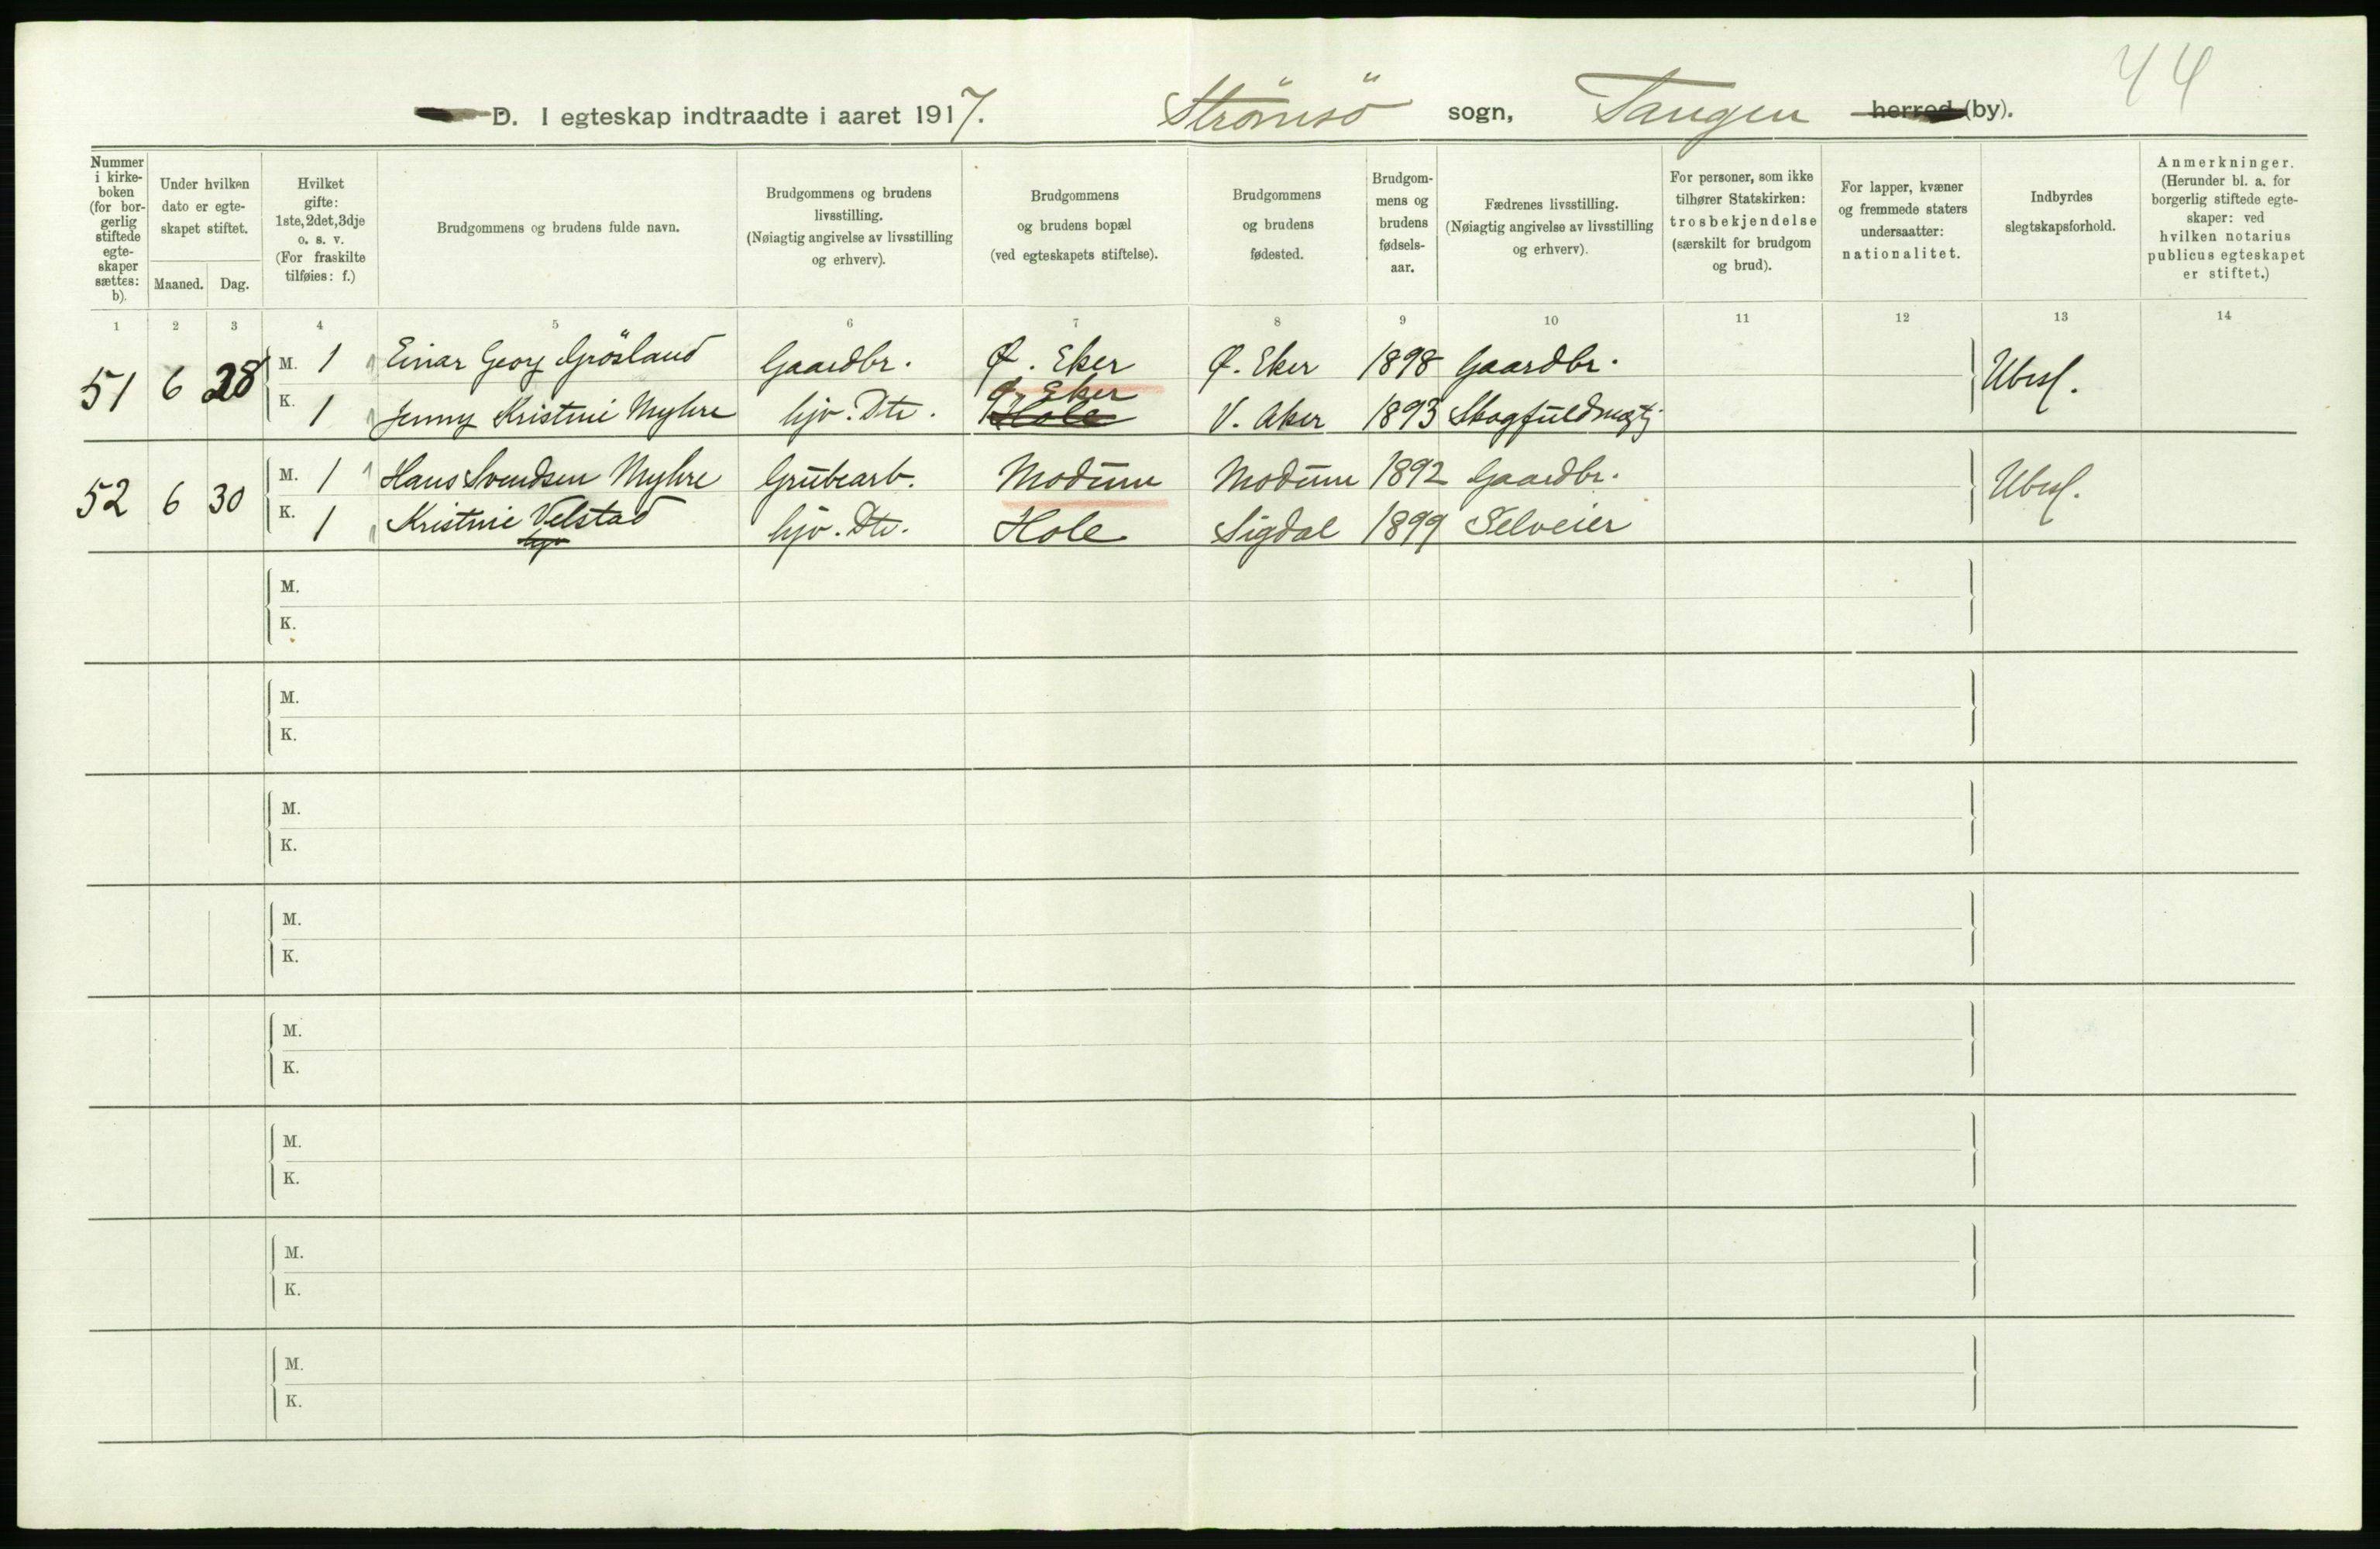 44
D. I egteskap indtraadte i aaret 1917. Strömsö sogn, Tangen herred (by).
Nummer i kirkeboken (for borgerlig stiftede egteskaper sættes: b).
Under hvilken dato er egteskapet stiftet.
Maaned. Dag.
Hvilket gifte: 1ste, 2det, 3dje o. s. v. (For fraskilte tilføies: f.)
Brudgommens og brudens fulde navn.
Brudgommens og brudens livsstilling. (Nøiagtig angivelse av livsstilling og erhverv).
Brudgommens og brudens bopæl (ved egteskapets stiftelse).
Brudgommens og brudens fødested.
Brudgommens og brudens fødselsaar.
Fædrenes livsstilling. (Nøiagtig angivelse av livsstilling og erhverv).
For personer, som ikke tilhører Statskirken: trosbekjendelse (særskilt for brudgom og brud).
For lapper, kvæner og fremmede staters undersaatter: nationalitet.
Indbyrdes slegtskapsforhold.
Anmerkninger. (Herunder bl. a. for borgerlig stiftede egteskaper: ved hvilken notarius publicus egteskapet er stiftet.)
1 2 3 4 5 6 7 8 9 10 11 12 13 14
51 6 28 M. 1 Einar Georg Grösland Gaardbr. Ø. Eker Ø. Eker 1898 Gaardbr. Ubesl.
Ø. Eker
K. 1 Jenny Kristine Myhre hjv. Dtr. Hole V. Aker 1893 Skogfuldmegtj
52 6 30 M. 1 Hans Svendsen Myhre Grubearb. Modum Modum 1892 Gaardbr. Ubesl.
K. 1 Kristine Velstad hjv. Dtr. Hole Sigdal 1899 Selveier
M.
K.
M.
K.
M.
K.
M.
K.
M.
K.
M.
K.
M.
K.
M.
K.